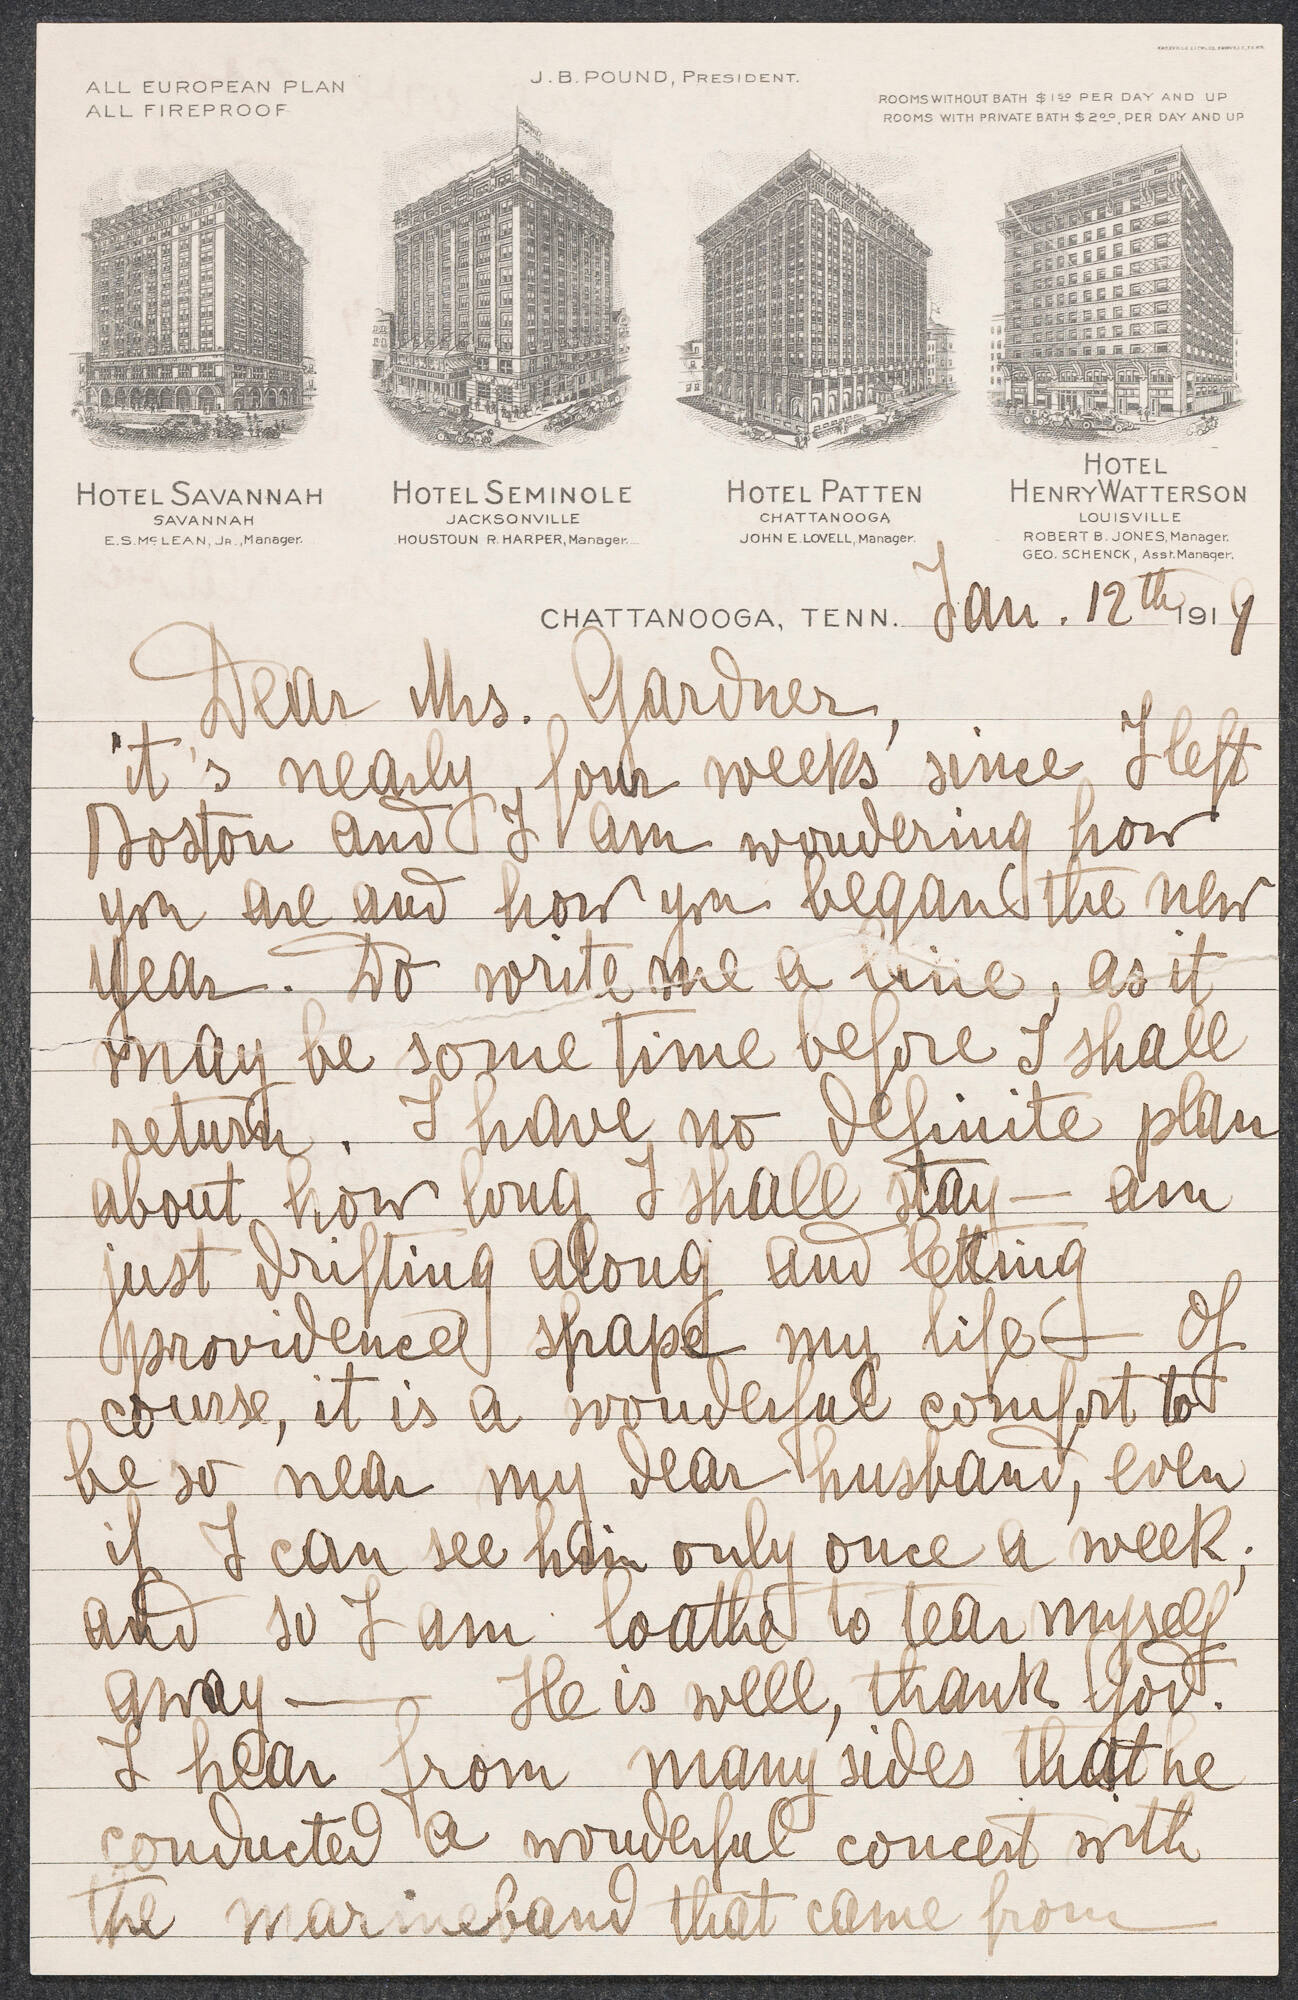 ALL EUROPEAN PLAN
ALL FIREPROOF
J. B. POUND, PRESIDENT.
ROOMS WITHOUT BATH $1.50 PER DAY AND UP
ROOMS WITH PRIVATE BATH $2.00, PER DAY AND UP
HOTEL SAVANNAH
SAVANNAH
E. S. McLEAN, JR., Manager.
HOTEL SEMINOLE
JACKSONVILLE
HOUSTOUN R. HARPER, Manager.
HOTEL PATTEN
CHATTANOOGA
JOHN E. LOVELL, Manager.
HOTEL
HENRY WATTERSON
LOUISVILLE
ROBERT B. JONES, Manager.
GEO. SCHENCK, Asst. Manager.
CHATTANOOGA, TENN. Jan. 12th 1919
Dear Mrs. Gardner,
it's nearly four weeks since I left
Boston and I am wondering how
you are and how you began the new
Year. Do write me a line, as it
may be some time before I shall
return. I have no definite plan
about how long I shall stay — am
just drifting along and letting
providence shape my life — Of
course, it is a wonderful comfort to
be so near my dear husband, even
if I can see him only once a week,
and so I am loathe to tear myself
away — He is well, thank God.
I hear from many sides that he
conducted a wonderful concert with
the marineband that came from